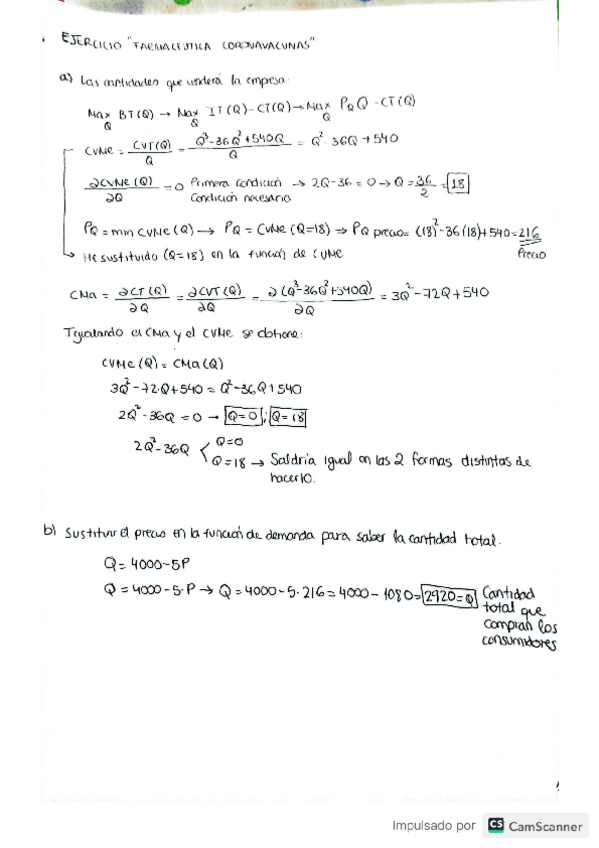 EJERCICIO "FARMACEUTICA CORONAVACUNAS"
a) Las cantidades que venderá la empresa:
Max Q BT(Q) → Max Q IT(Q)-CT(Q) → Max Q PQ Q - CT(Q)
CVMe = CVT(Q)/Q = Q³-36Q²+540Q/Q = Q² - 36Q + 540
∂CVMe(Q)/∂Q = 0 Primera condición Condición necesaria → 2Q-36 = 0 → Q = 36/2 = 18
PQ = min CVMe(Q) → PQ = CVMe(Q=18) → PQ precio = (18)² - 36(18) + 540 = 216 Precio
He sustituido (Q=18) en la función de CVMe
CMa = ∂CT(Q)/∂Q = ∂CVT(Q)/∂Q = ∂(Q³-36Q²+540Q)/∂Q = 3Q² - 72Q + 540
Igualando el CMa y el CVMe se obtiene:
CVMe(Q) = CMa(Q)
3Q² - 72·Q + 540 = Q² - 36Q + 540
2Q² - 36Q = 0 → Q=0 ; Q=18
2Q² - 36Q Q=0
Q=18 → Saldría igual en las 2 formas distintas de hacerlo.
b) Sustituir el precio en la función de demanda para saber la cantidad total.
Q = 4000 - 5P
Q = 4000 - 5·P → Q = 4000 - 5·216 = 4000 - 1080 = 2920 = Q Cantidad
total que
compran los
consumidores
Impulsado por CS CamScanner